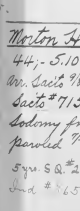 Morton H
44; - 5.10
arr. Sacto 9/
Sacto # 715
Sodomy fr
paroled 7/
5 yrs. S.Q. # 2
Ind # 65